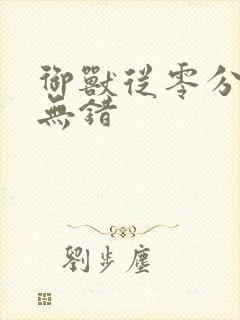 御獸從零分
無錯
劉步塵